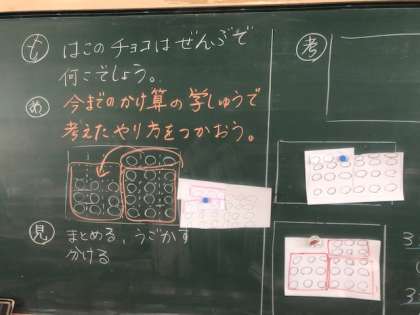 も
はこのチョコはぜんぶで
何こでしょう。
め
今までのかけ算の学しゅうで
考えたやり方をつかおう。
見
まとめる、うごかす
分ける
考
3
3